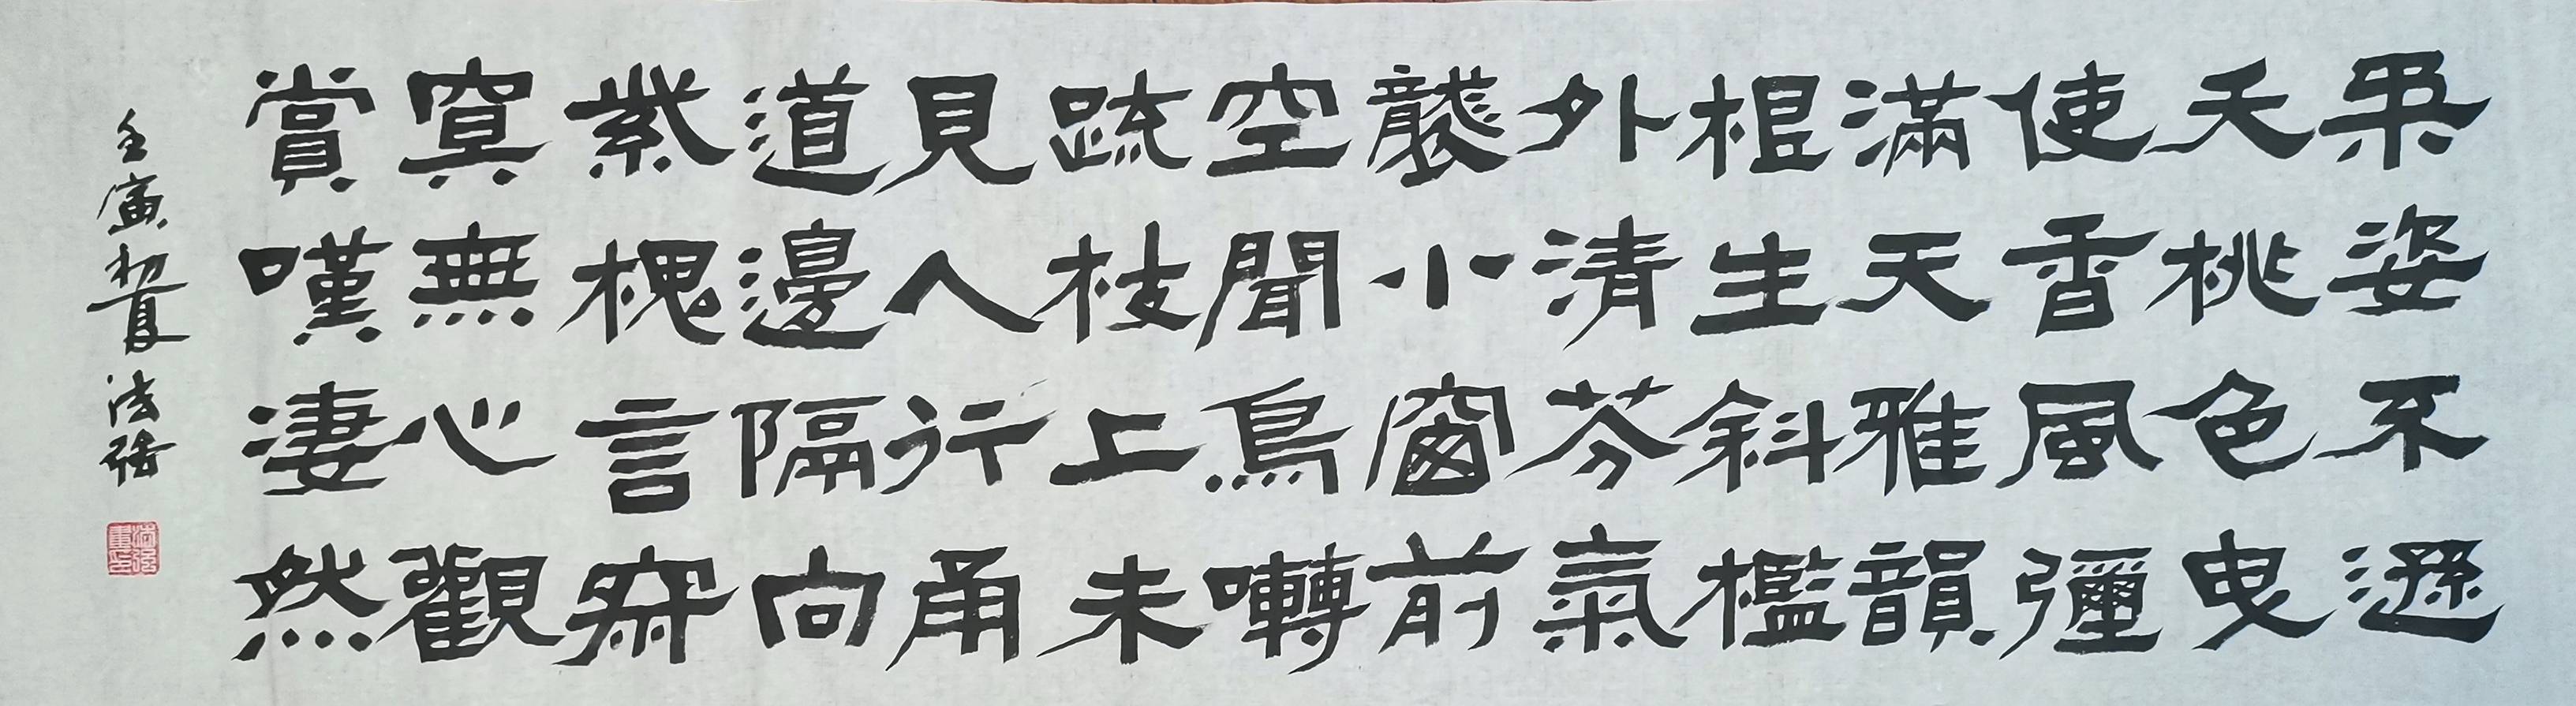 柔姿不遜
夭桃色曳
使香風彌
滿天雅韻
根生斜檻
外清芬氣
襲小窗前
空聞鳥囀
疏枝上未
見人行甬
道邊隔向
紫槐言寂
寞無心觀
賞嘆淒然
壬寅初夏法強